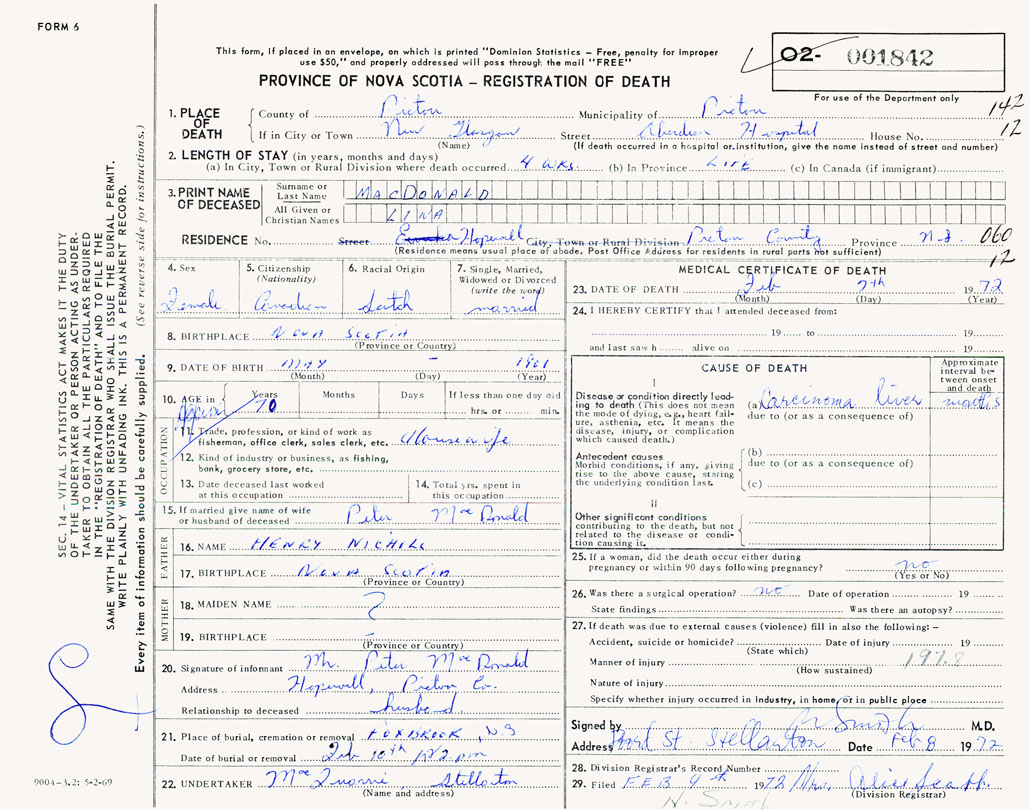 FORM 6
This form, if placed in an envelope, on which is printed "Dominion Statistics – Free, penalty for improper
use $50," and properly addressed will pass through the mail "FREE"
PROVINCE OF NOVA SCOTIA – REGISTRATION OF DEATH
02- 001842
For use of the Department only
142
12
1. PLACE OF DEATH
County of Pictou Municipality of Pictou
If in City or Town New Glasgow Street Aberdeen Hospital House No.
(Name) (If death occurred in a hospital or institution, give the name instead of street and number)
2. LENGTH OF STAY (in years, months and days)
(a) In City, Town or Rural Division where death occurred 4 wks. (b) In Province LIFE (c) In Canada (if immigrant)
3. PRINT NAME OF DECEASED
Surname or Last Name MACDONALD
All Given or Christian Names LINA
RESIDENCE No. Street Eureka Hopewell City, Town or Rural Division Pictou County Province N.S. 060
(Residence means usual place of abode. Post Office Address for residents in rural parts not sufficient)
12
4. Sex Female
5. Citizenship (Nationality) Canadian
6. Racial Origin Scotch
7. Single, Married, Widowed or Divorced (write the word) married
8. BIRTHPLACE NOVA SCOTIA
(Province or Country)
9. DATE OF BIRTH MAY – 1901
(Month) (Day) (Year)
10. AGE in Years Months Days If less than one day old
approx 70 hrs. or min.
OCCUPATION
11. Trade, profession, or kind of work as
fisherman, office clerk, sales clerk, etc. Housewife
12. Kind of industry or business, as fishing,
bank, grocery store, etc.
13. Date deceased last worked
at this occupation
14. Total yrs. spent in
this occupation
15. If married give name of wife
or husband of deceased Peter MacDonald
FATHER
16. NAME HENRY NICHOLL
17. BIRTHPLACE NOVA SCOTIA
(Province or Country)
MOTHER
18. MAIDEN NAME ?
19. BIRTHPLACE –
(Province or Country)
20. Signature of informant Mr. Peter MacDonald
Address Hopewell, Pictou Co.
Relationship to deceased husband
21. Place of burial, cremation or removal FOXBROOK, N.S
Date of burial or removal Feb 10th 1972 pm
22. UNDERTAKER Stellarton
(Name and address)
MEDICAL CERTIFICATE OF DEATH
23. DATE OF DEATH Feb 7th 1972
(Month) (Day) (Year)
24. I HEREBY CERTIFY that I attended deceased from:
19 to 19
and last saw h alive on 19
CAUSE OF DEATH
Approximate interval between onset and death
I
Disease or condition directly leading
to death (This does not mean
the mode of dying, e.g., heart failure,
asthenia, etc. It means the
disease, injury, or complication
which caused death.)
(a) Carcinoma liver months
due to (or as a consequence of)
Antecedent causes
Morbid conditions, if any, giving
rise to the above cause, stating
the underlying condition last.
(b)
due to (or as a consequence of)
(c)
II
Other significant conditions
contributing to the death, but not
related to the disease or condition
causing it.
25. If a woman, did the death occur either during
pregnancy or within 90 days following pregnancy? no
(Yes or No)
26. Was there a surgical operation? no Date of operation 19
State findings Was there an autopsy?
27. If death was due to external causes (violence) fill in also the following: –
Accident, suicide or homicide? Date of injury 19
(State which)
Manner of injury
(How sustained)
Nature of injury
Specify whether injury occurred in Industry, in home, or in public place
Signed by Smith M.D.
Address Ford St. Stellarton Date Feb 8 1972
28. Division Registrar's Record Number
29. Filed FEB 9th 1972 Mrs.
(Division Registrar)
N. Smith
SEC. 14 – VITAL STATISTICS ACT MAKES IT THE DUTY
OF THE UNDERTAKER OR PERSON ACTING AS UNDERTAKER
TO OBTAIN ALL THE PARTICULARS REQUIRED
IN THE "REGISTRATION OF DEATH" AND TO FILE THE
SAME WITH THE DIVISION REGISTRAR WHO SHALL ISSUE THE BURIAL PERMIT.
WRITE PLAINLY WITH UNFADING INK. THIS IS A PERMANENT RECORD.
Every item of information should be carefully supplied. (See reverse side for instructions.)
9004-3.2: 5-2-69